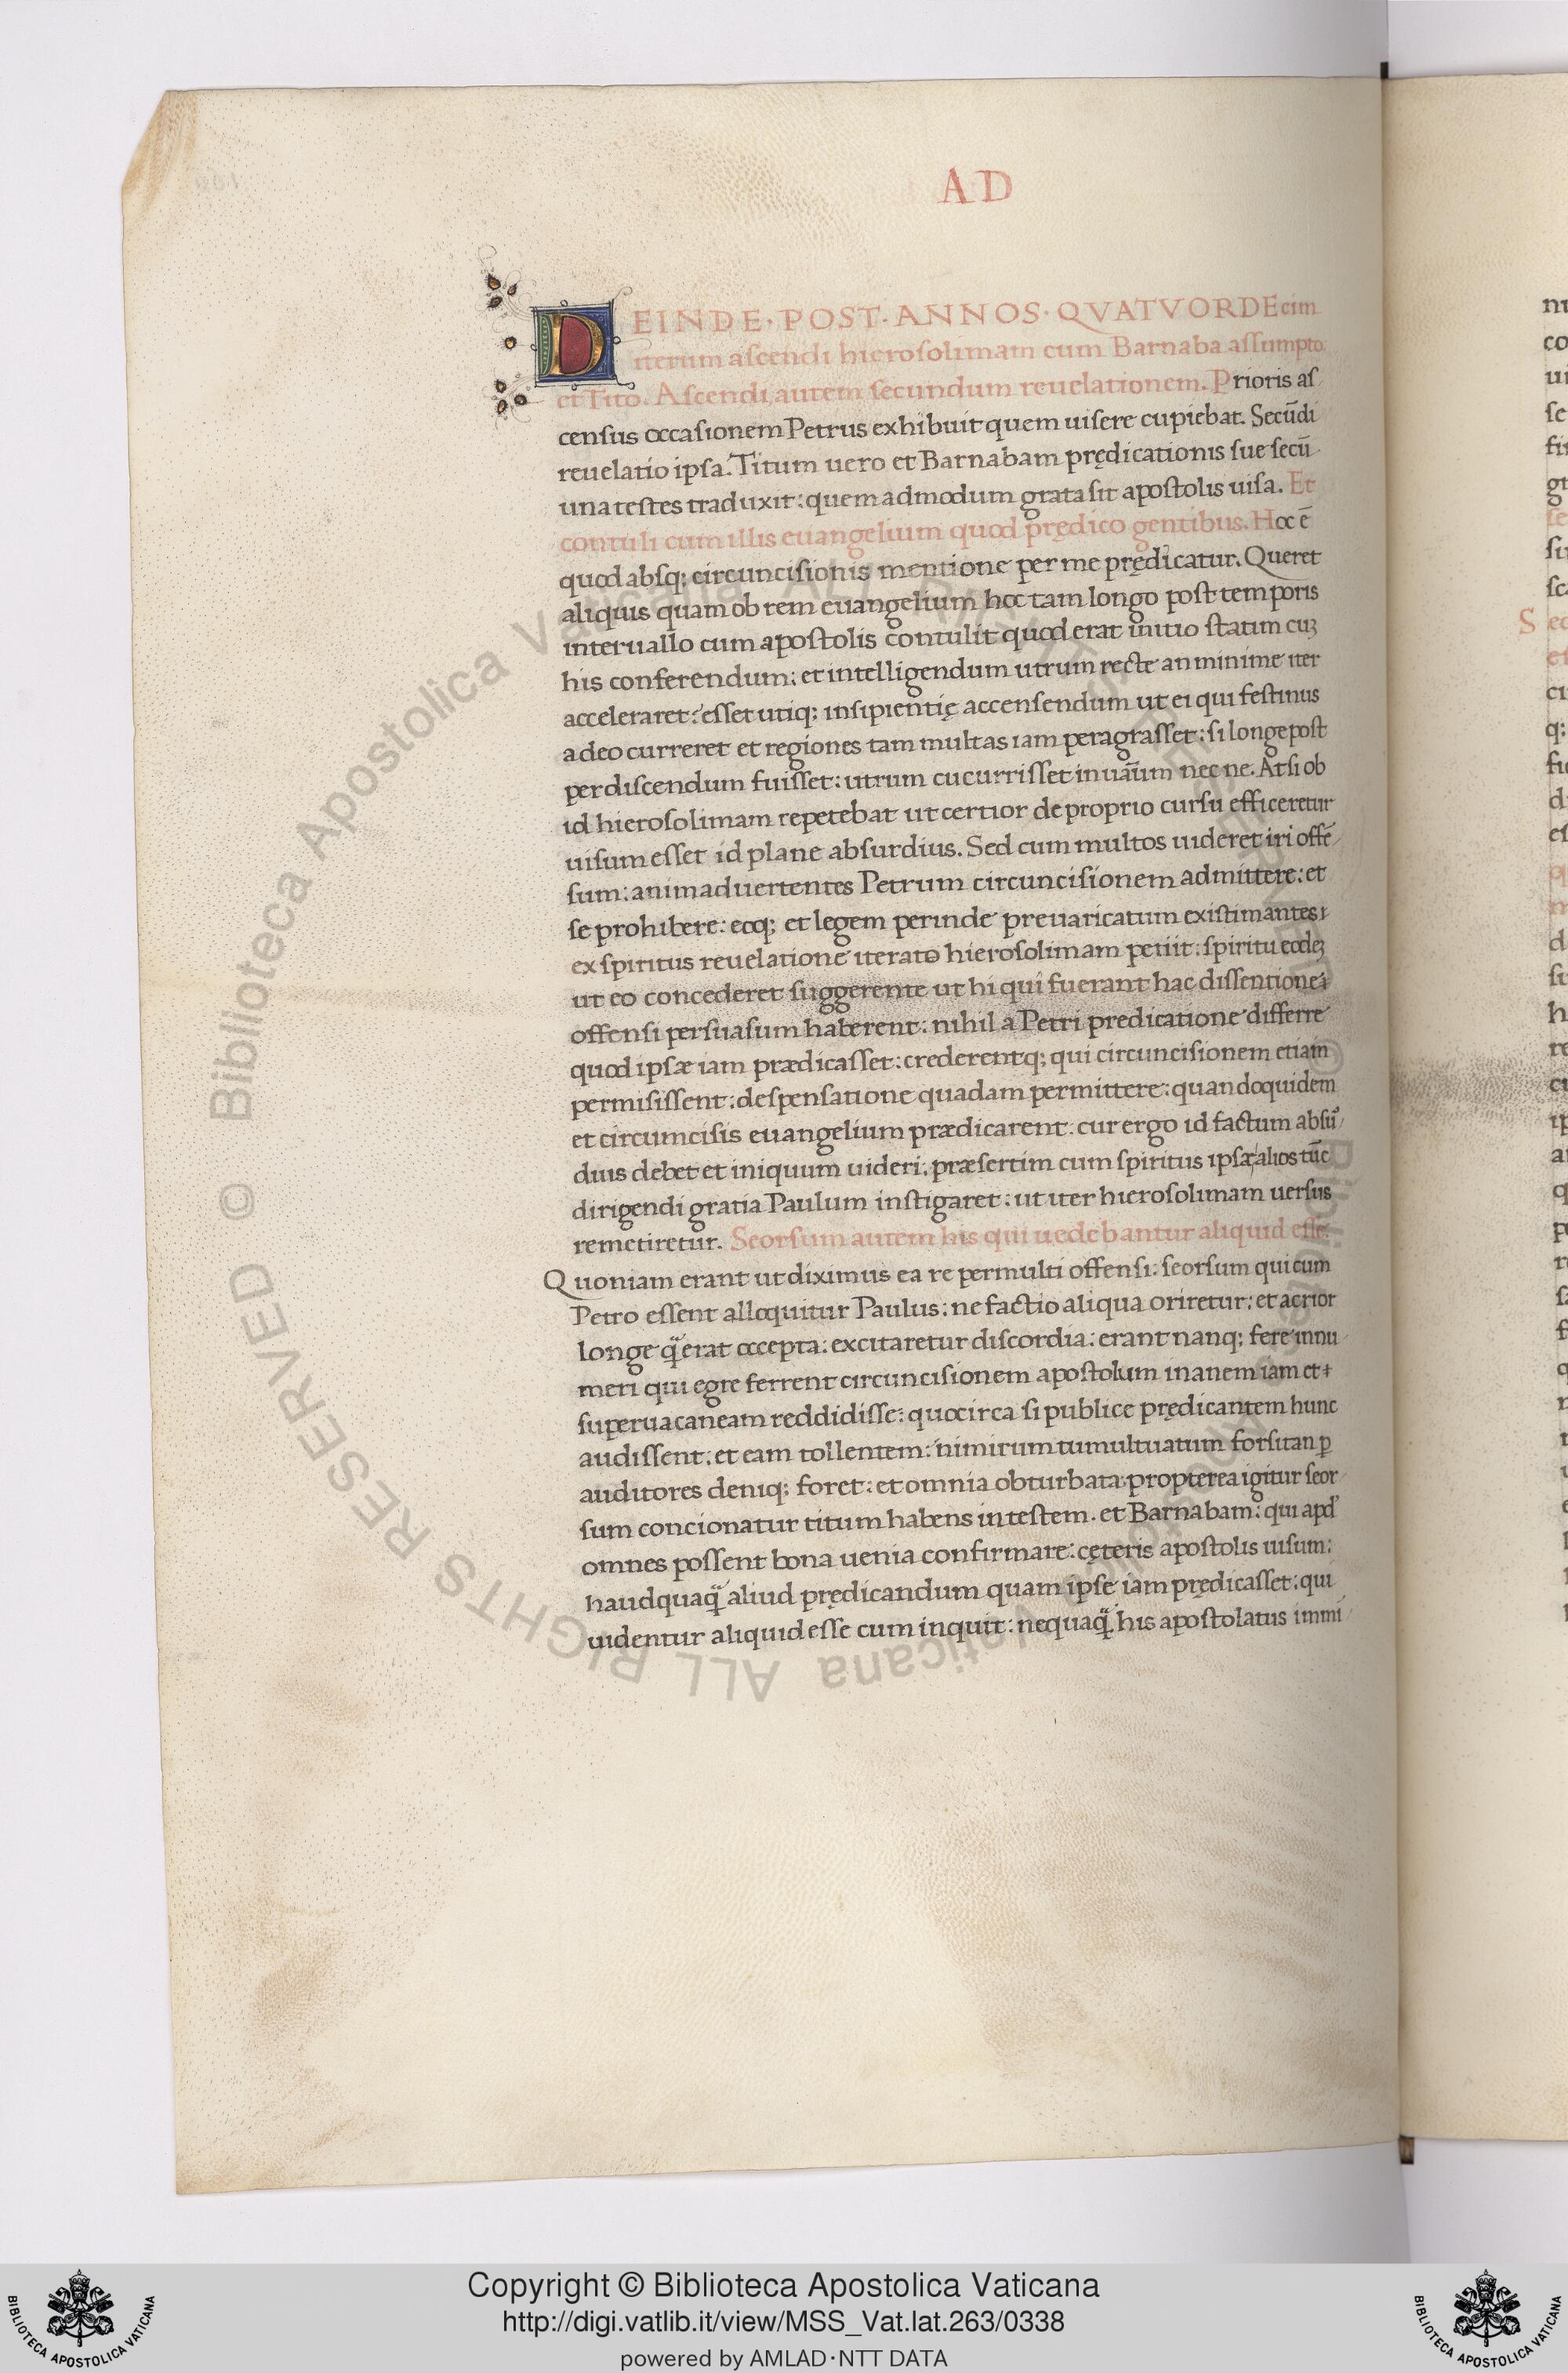 AD
DEINDE·POST·ANNOS·QVATVORDEcim
iterum aſcendi hieroſolimam cum Barnaba aſſumpto
et Tito. Aſcendi autem ſecundum reuelationem. Prioris aſ
cenſus occaſionem Petrus exhibuit quem uiſere cupiebat. Secūdi
reuelatio ipſa. Titum uero et Barnabam prędicationis ſue ſecū
una teſtes traduxit: quemadmodum grata ſit apoſtolis uiſa. Et
contuli cum illis euangelium quod prędico gentibus. Hoc ē
quod abſq; circunciſionis mentione per me prędicatur. Queret
aliquis quam ob rem euangelium hoc tam longo poſt temporis
interuallo cum apoſtolis contulit quod erat initio ſtatim cuꝫ
his conferendum: et intelligendum utrum recte an minime iter
acceleraret: eſſet utiq; inſipientię accenſendum ut ei qui feſtinus
adeo curreret et regiones tam multas iam peragraſſet: ſi longe poſt
perdiſcendum fuiſſet: utrum cucurriſſet in uāum nec ne. At ſi ob
id hieroſolimam repetebat ut certior de proprio curſu efficeretur
uiſum eſſet id plane abſurdius. Sed cum multos uideret iri offē
ſum: animaduertentes Petrum circunciſionem admittere: et
ſe prohibere: eoq; et legem perinde preuaricatum exiſtimantes:
ex ſpiritus reuelatione iterato hieroſolimam petiit: ſpiritu eodeꝫ
ut eo concederet ſuggerente ut hi qui fuerant hac diſſentione
offenſi perſuaſum haberent: nihil a Petri predicatione differre
quod ipſæ iam prædicaſſet: crederentq; qui circunciſionem etiam
permiſiſſent: deſpenſatione quadam permittere: quandoquidem
et circumciſis euangelium prædicarent: cur ergo id factum abſur
duis debet et iniquum uideri: præſertim cum ſpiritus ipſæ alios tūc
dirigendi gratia Paulum inſtigaret: ut iter hieroſolimam uerſus
remetiretur. Seorſum autem his qui uedebantur aliquid eſſe.
Quoniam erant ut diximus ea re permulti offenſi: ſeorſum qui cum
Petro eſſent alloquitur Paulus: ne factio aliqua oriretur: et acrior
longe q̃ erat occepta: excitaretur diſcordia: erant nanq; fere innu
meri qui egre ferrent circunciſionem apoſtolum inanem iam et
ſuperuacaneam reddidiſſe: quocirca ſi publice prędicantem hunc
audiſſent: et eam tollentem: nimirum tumultuatum forſitan ꝑ
auditores deniq; foret: et omnia obturbata: propterea igitur ſeor
ſum concionatur titum habens in teſtem. et Barnabam: qui apd'
omnes poſſent bona uenia confirmare: cęteris apoſtolis uiſum:
haudquaq̃ aliud prędicandum quam ipſe iam prędicaſſet: qui
uidentur aliquid eſſe cum inquit: nequaq̃ his apoſtolatus immi
© Biblioteca Apostolica Vaticana ALL RIGHTS RESERVED
Copyright © Biblioteca Apostolica Vaticana
http://digi.vatlib.it/view/MSS_Vat.lat.263/0338
powered by AMLAD·NTT DATA
BIBLIOTECA APOSTOLICA VATICANA
BIBLIOTECA APOSTOLICA VATICANA